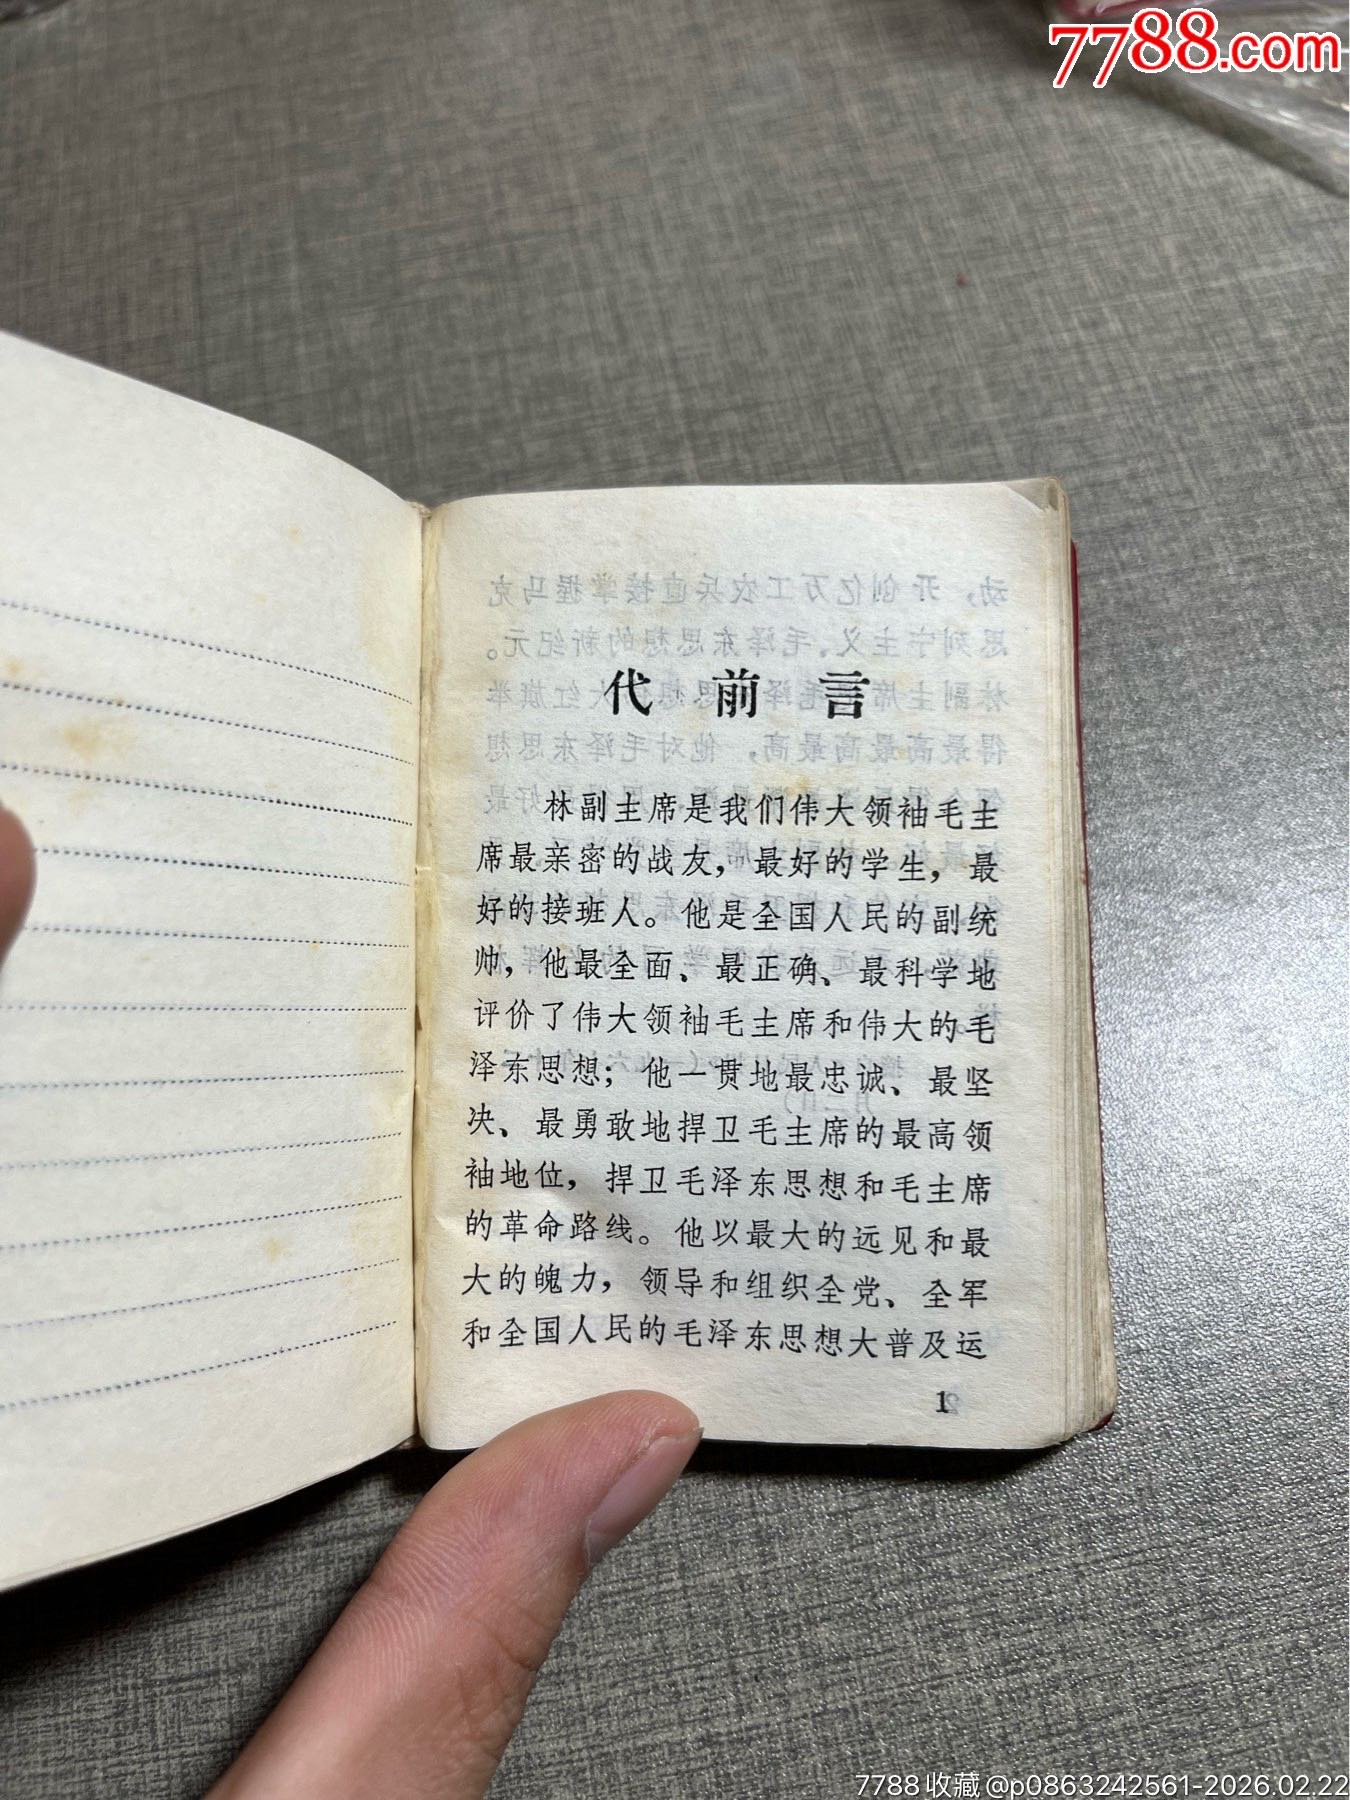 7788.com
代前言
林副主席是我们伟大领袖毛主
席最亲密的战友，最好的学生，最
好的接班人。他是全国人民的副统
帅，他最全面、最正确、最科学地
评价了伟大领袖毛主席和伟大的毛
泽东思想；他一贯地最忠诚、最坚
决、最勇敢地捍卫毛主席的最高领
袖地位，捍卫毛泽东思想和毛主席
的革命路线。他以最大的远见和最
大的魄力，领导和组织全党、全军
和全国人民的毛泽东思想大普及运
1
7788收藏@p0863242561-2026.02.22